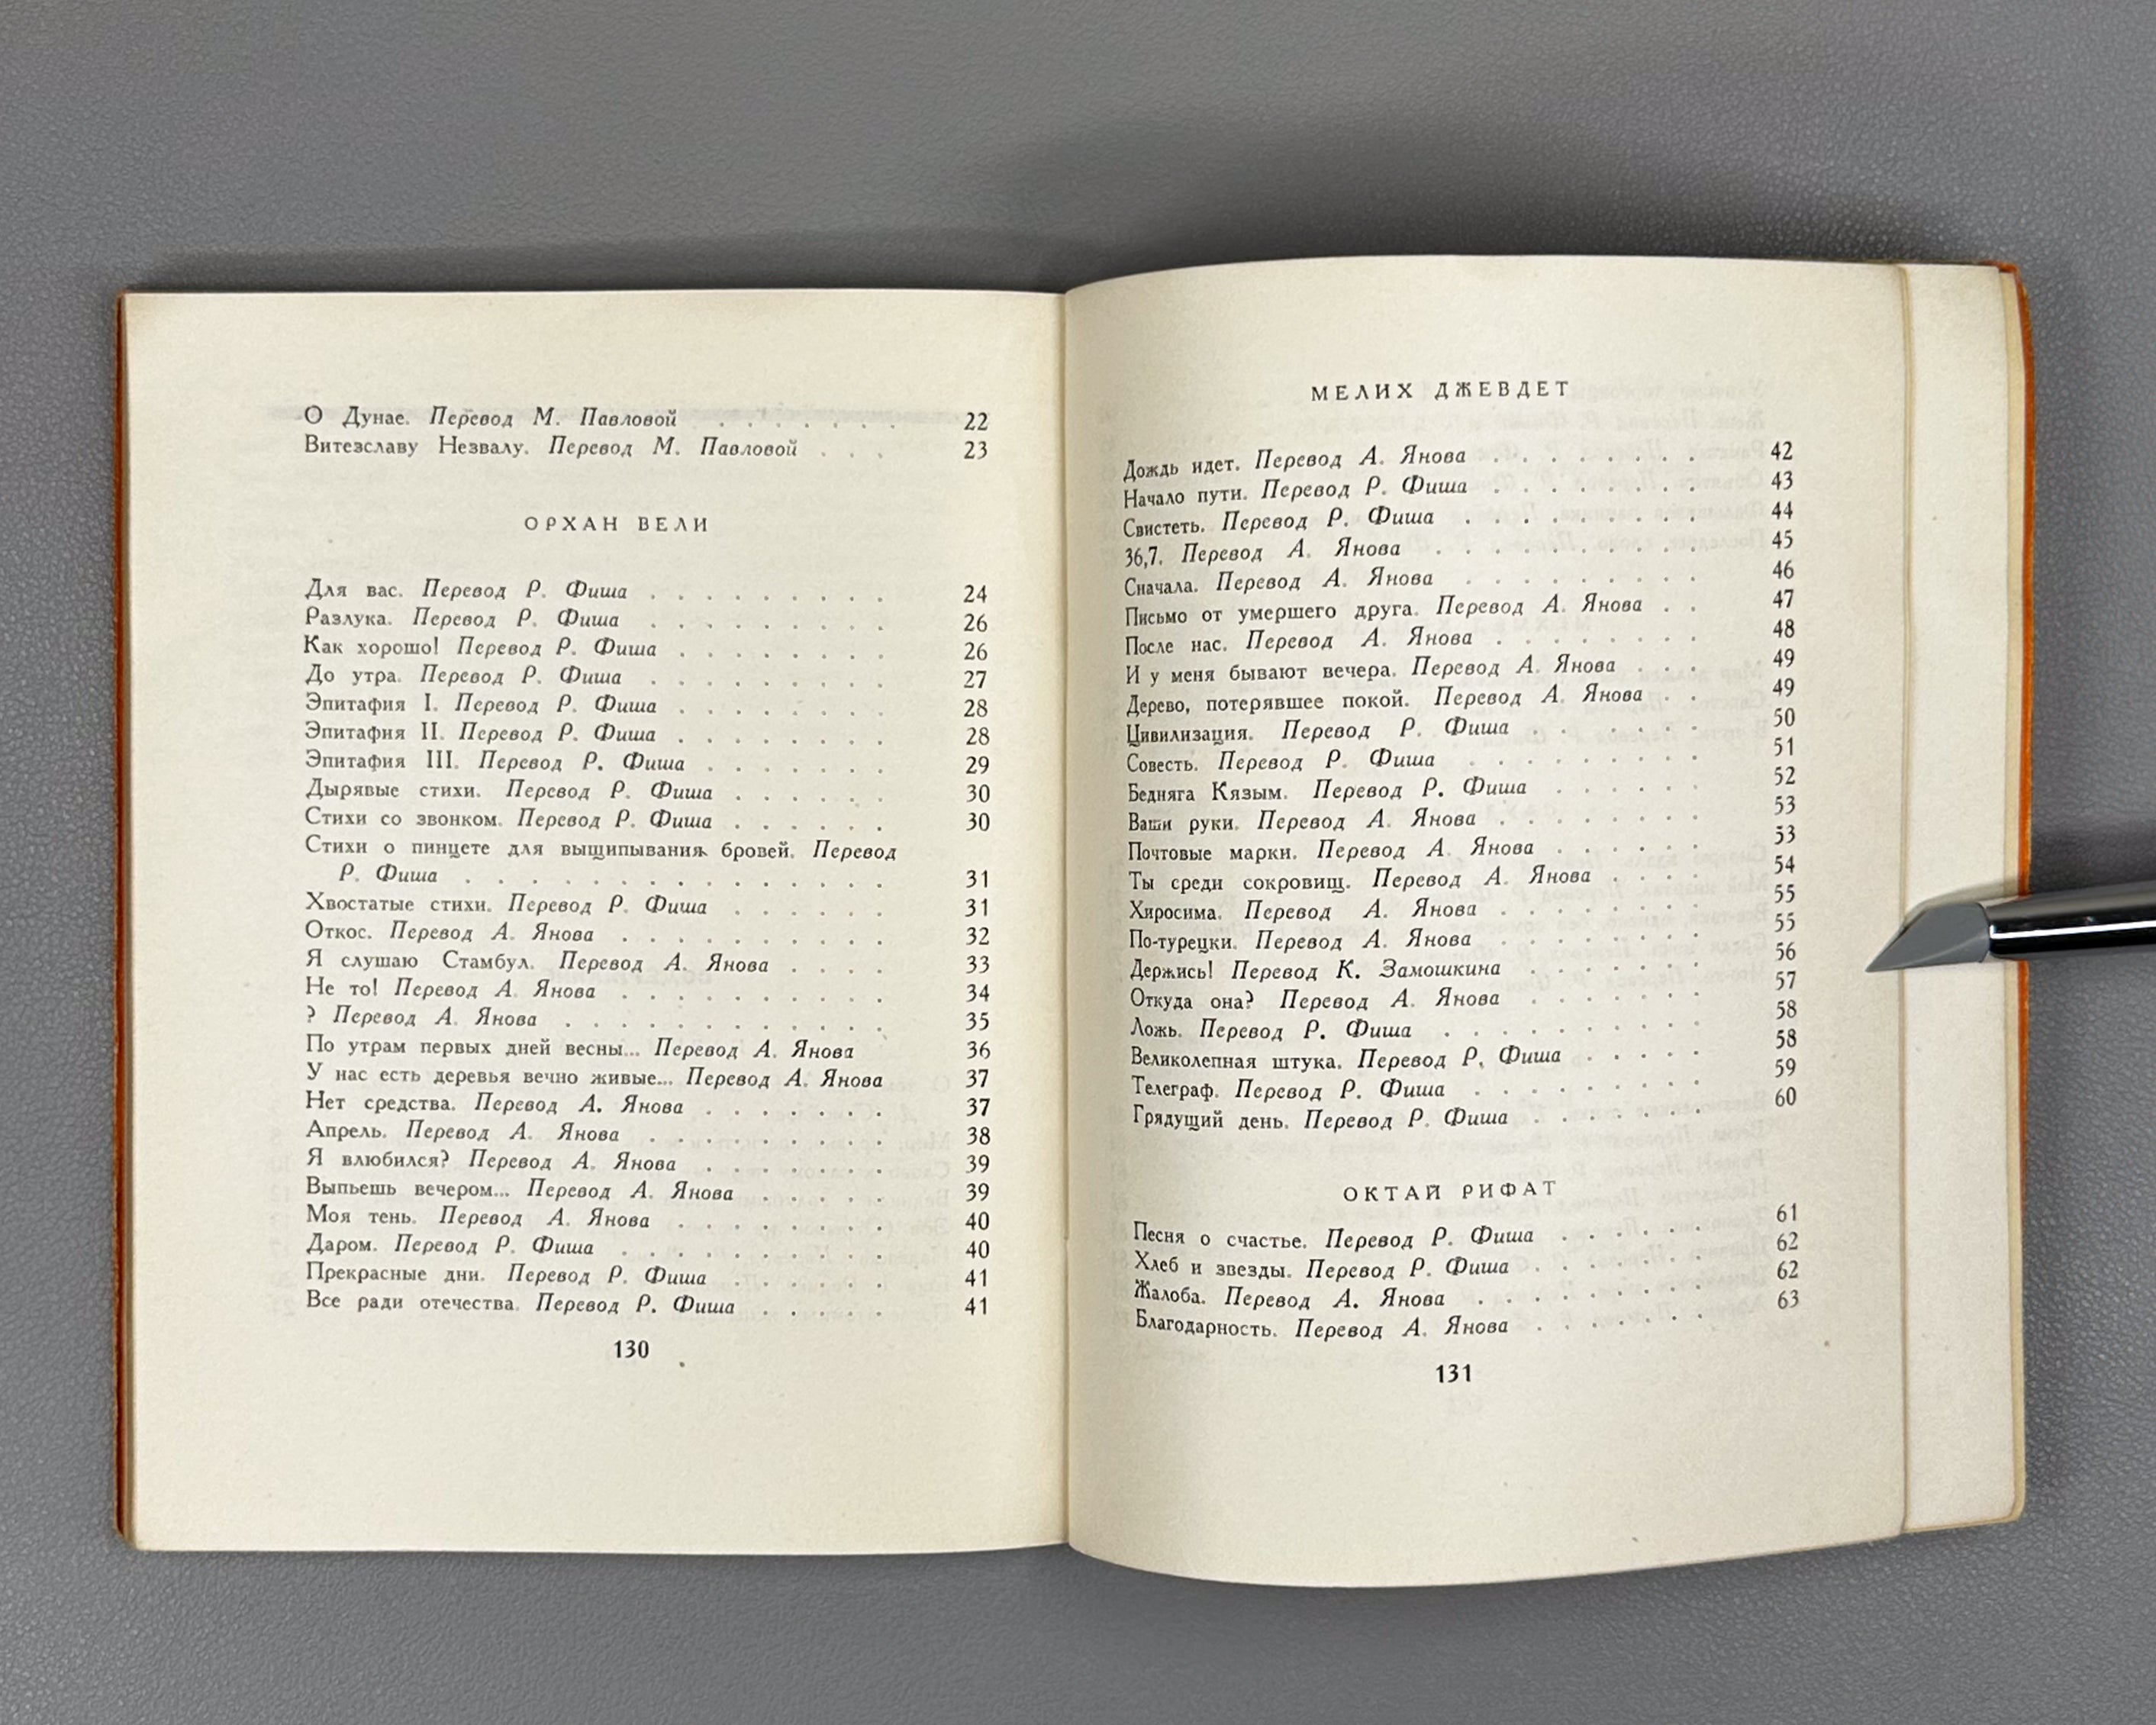 О Дунае. Перевод М. Павловой . . . . . . . 22
Витезславу Незвалу. Перевод М. Павловой . . . 23
ОРХАН ВЕЛИ
Для вас. Перевод Р. Фиша . . . . . . . . . 24
Разлука. Перевод Р. Фиша . . . . . . . . . 26
Как хорошо! Перевод Р. Фиша . . . . . . . . 26
До утра. Перевод Р. Фиша . . . . . . . . . 27
Эпитафия I. Перевод Р. Фиша . . . . . . . . 28
Эпитафия II. Перевод Р. Фиша . . . . . . . . 28
Эпитафия III. Перевод Р. Фиша . . . . . . . 29
Дырявые стихи. Перевод Р. Фиша . . . . . . 30
Стихи со звонком. Перевод Р. Фиша . . . . . . 30
Стихи о пинцете для выщипывания бровей. Перевод
Р. Фиша . . . . . . . . . . . . . . . 31
Хвостатые стихи. Перевод Р. Фиша . . . . . . 31
Откос. Перевод А. Янова . . . . . . . . . . 32
Я слушаю Стамбул. Перевод А. Янова . . . . 33
Не то! Перевод А. Янова . . . . . . . . . . 34
? Перевод А. Янова . . . . . . . . . . . . 35
По утрам первых дней весны... Перевод А. Янова 36
У нас есть деревья вечно живые... Перевод А. Янова 37
Нет средства. Перевод А. Янова . . . . . . . 37
Апрель. Перевод А. Янова . . . . . . . . . 38
Я влюбился? Перевод А. Янова . . . . . . . 39
Выпьешь вечером... Перевод А. Янова . . . . . 39
Моя тень. Перевод А. Янова . . . . . . . . 40
Даром. Перевод Р. Фиша . . . . . . . . . . 40
Прекрасные дни. Перевод Р. Фиша . . . . . . 41
Все ради отечества. Перевод Р. Фиша . . . . . 41
130
МЕЛИХ ДЖЕВДЕТ
Дождь идет. Перевод А. Янова . . . . . . . . 42
Начало пути. Перевод Р. Фиша . . . . . . . . 43
Свистеть. Перевод Р. Фиша . . . . . . . . . 44
36,7. Перевод А. Янова . . . . . . . . . . 45
Сначала. Перевод А. Янова . . . . . . . . . 46
Письмо от умершего друга. Перевод А. Янова . . 47
После нас. Перевод А. Янова . . . . . . . . 48
И у меня бывают вечера. Перевод А. Янова . . . 49
Дерево, потерявшее покой. Перевод А. Янова . . 49
Цивилизация. Перевод Р. Фиша . . . . . . . 50
Совесть. Перевод Р. Фиша . . . . . . . . . 51
Бедняга Кязым. Перевод Р. Фиша . . . . . . 52
Ваши руки. Перевод А. Янова . . . . . . . . 53
Почтовые марки. Перевод А. Янова . . . . . . 53
Ты среди сокровищ. Перевод А. Янова . . . . 54
Хиросима. Перевод А. Янова . . . . . . . . 55
По-турецки. Перевод А. Янова . . . . . . . . 55
Держись! Перевод К. Замошкина . . . . . . . 56
Откуда она? Перевод А. Янова . . . . . . . 57
Ложь. Перевод Р. Фиша . . . . . . . . . . 58
Великолепная штука. Перевод Р. Фиша . . . . . 58
Телеграф. Перевод Р. Фиша . . . . . . . . . 59
Грядущий день. Перевод Р. Фиша . . . . . . . 60
ОКТАЙ РИФАТ
Песня о счастье. Перевод Р. Фиша . . . . . . 61
Хлеб и звезды. Перевод Р. Фиша . . . . . . . 62
Жалоба. Перевод А. Янова . . . . . . . . . 62
Благодарность. Перевод А. Янова . . . . . . . 63
131